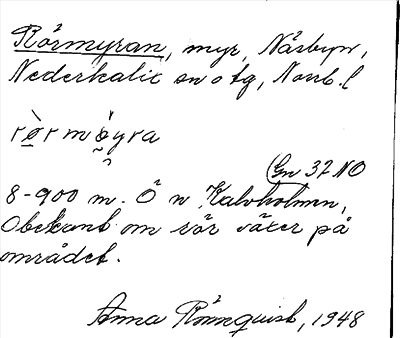 Rörmyran, myr, Näsbyn,
Nederkalix sn o tg, Norrb. l
rø̀r mø̀yra
Gn 32 NO
8-900 m. Ö n Kalvholmen,
Obekant om rör växer på
området.
Anna Rönnquist, 1948